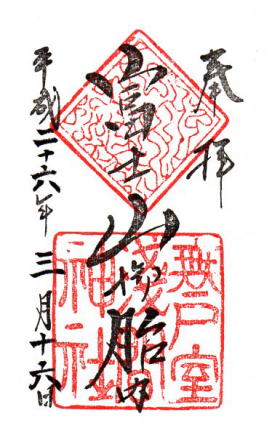 奉拝
富士山御胎内
平成二十六年三月十六日
無戸室
淺間
神社